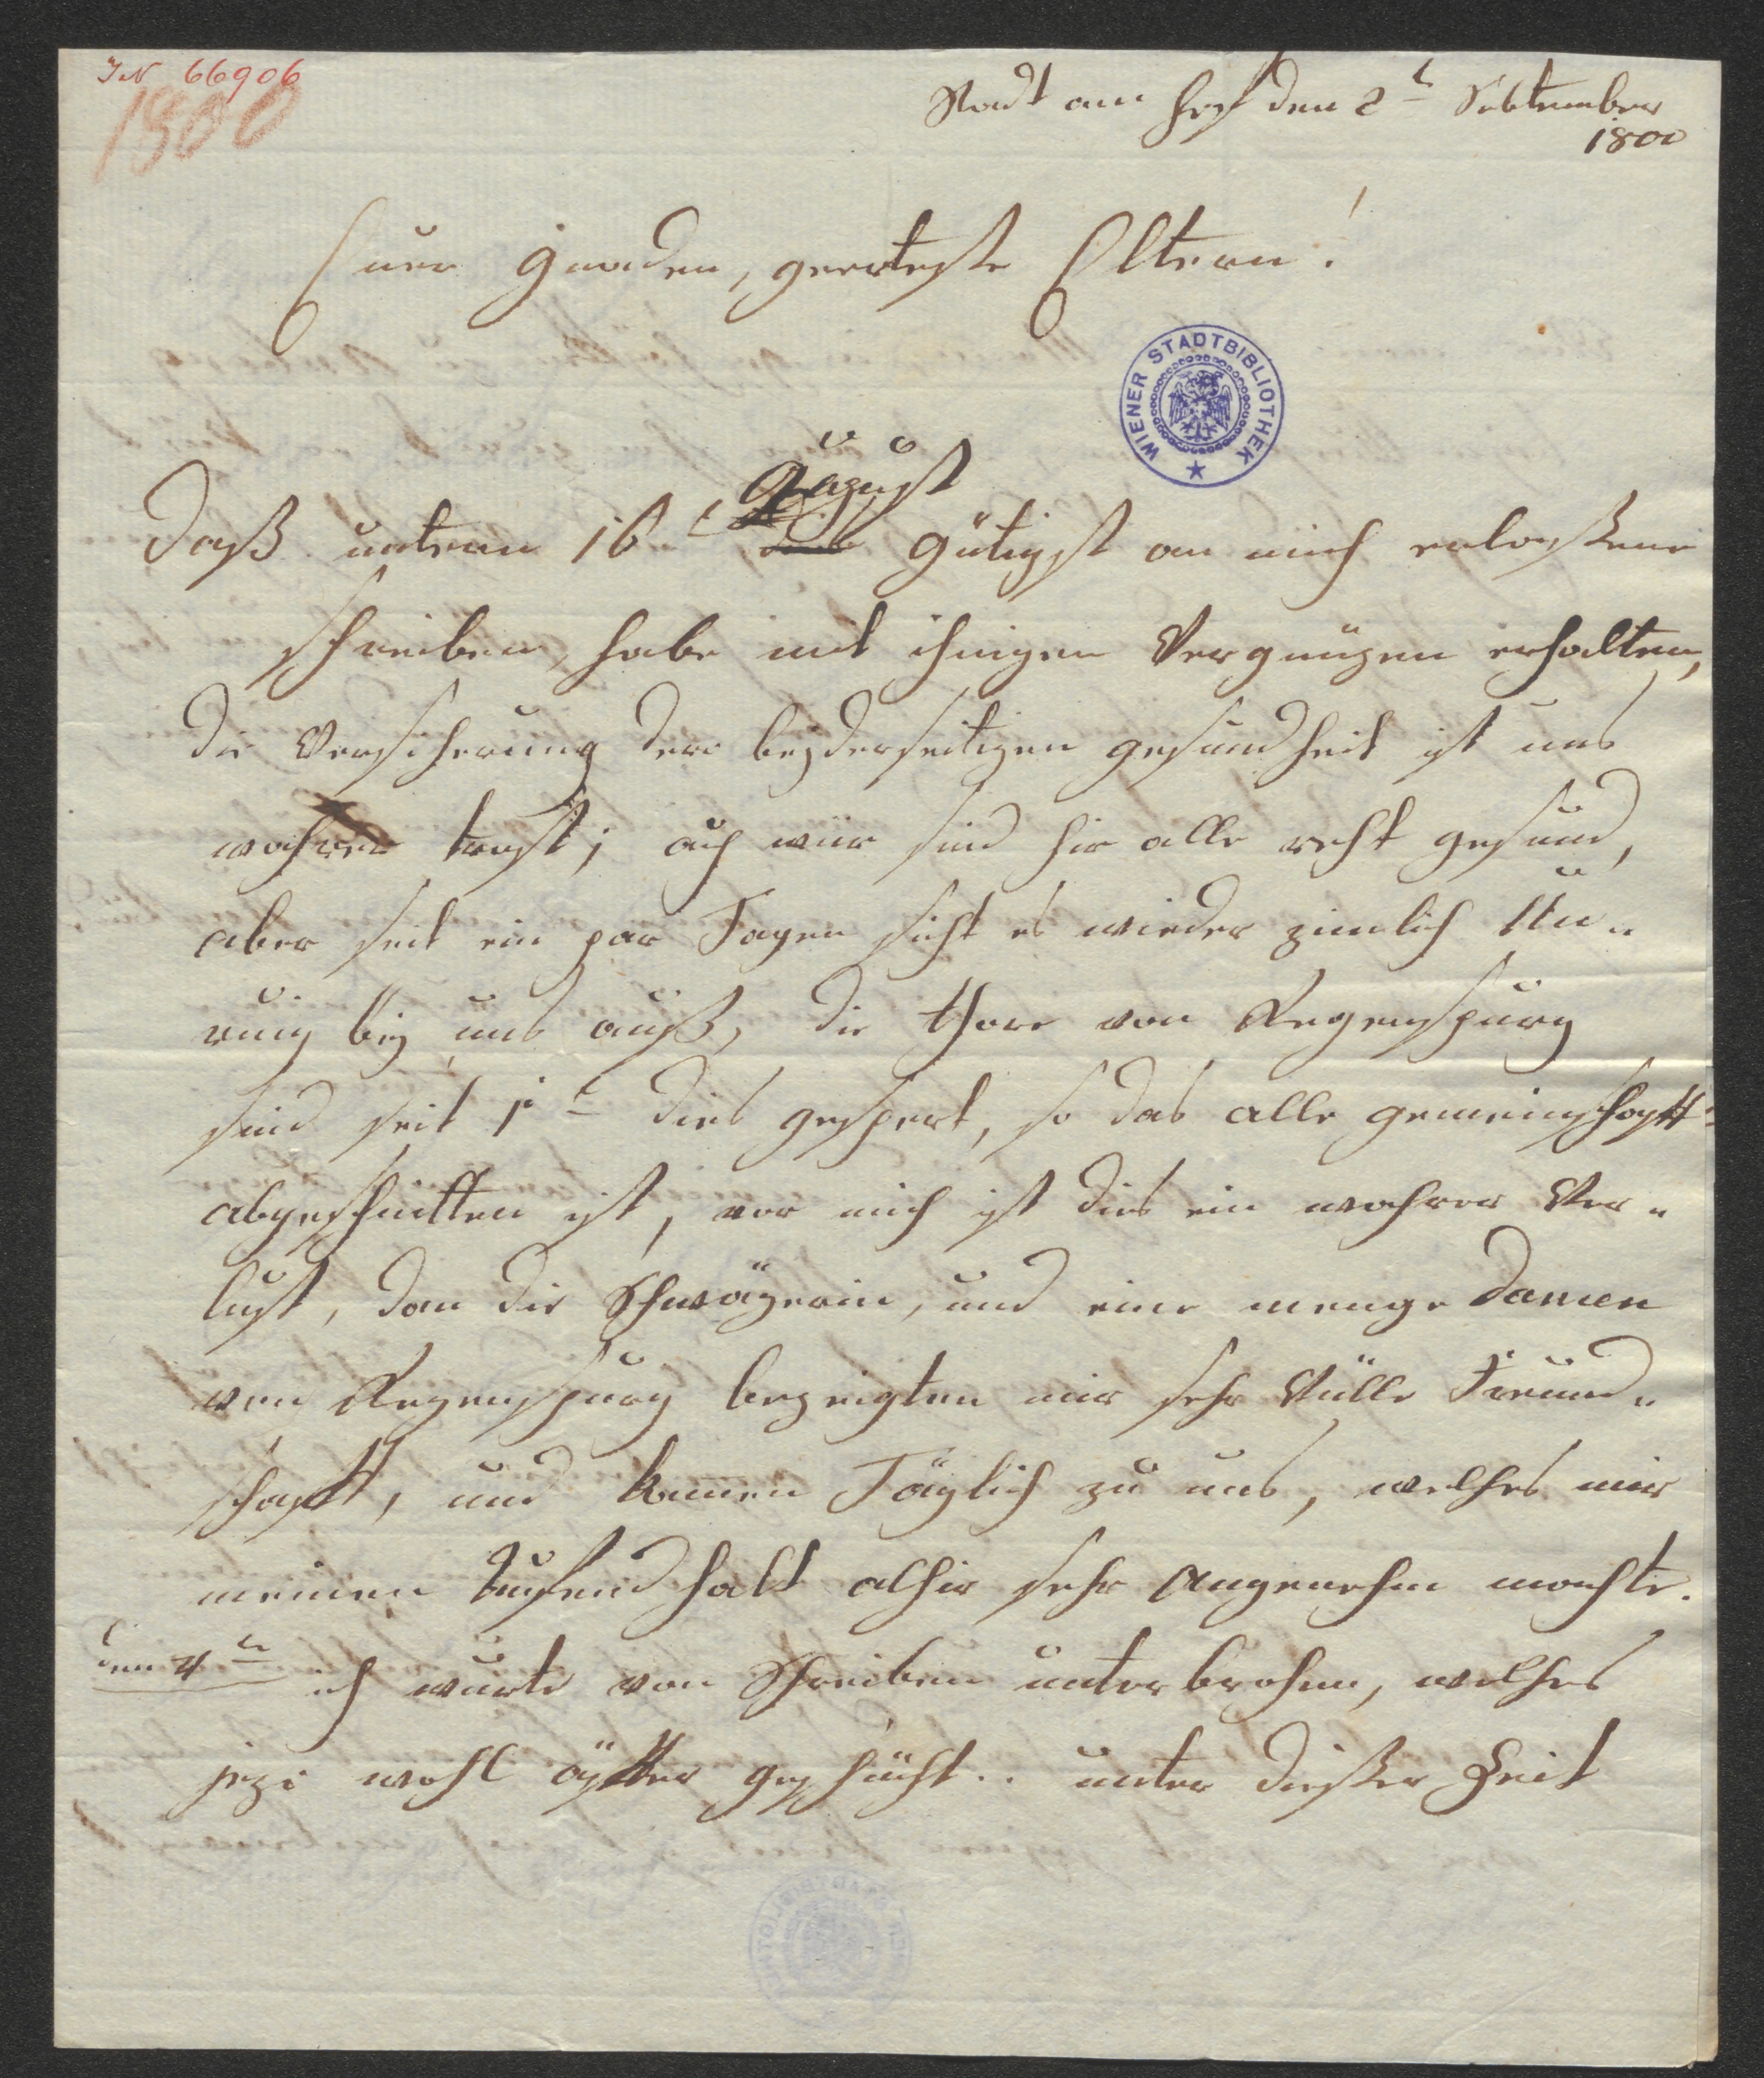 IN 66906
1800
Stadt am hof den 2t Sebtember
1800
Euer Gnaden, geerteste Eltern!
WIENER STADTBIBLIOTHEK
August
Daß unterm 16t dies gütigst an mich erlaßene
schreiben, habe mit ihnigen Vergnügen erhalten,
die Versicherung dero beyderseitigen gesundheit ist uns
wahrer trost; auch wür sind hir alle recht gesund,
aber seit ein par Tagen sicht es wieder zimlich Un„
ruig bey uns auß, die thore von Regenspurg
sind seit 1t dies gespert, so das alle gemeinschafft
abgeschnitten ist, vor mich ist dies ein wahrer Ver„
lust, dan die Schwägerin, und eine menge Damen
von Regenspurg bezeigten mir sehr Vülle Freund„
schafft, und kamen Täglich zu uns, welches mir
meinen aufend halt alhir sehr Angenehm machte.
den 4tn ich wurte von Schreiben unterbrochen, welches
jeze wohl öffter geschücht.. unter dießer Zeit